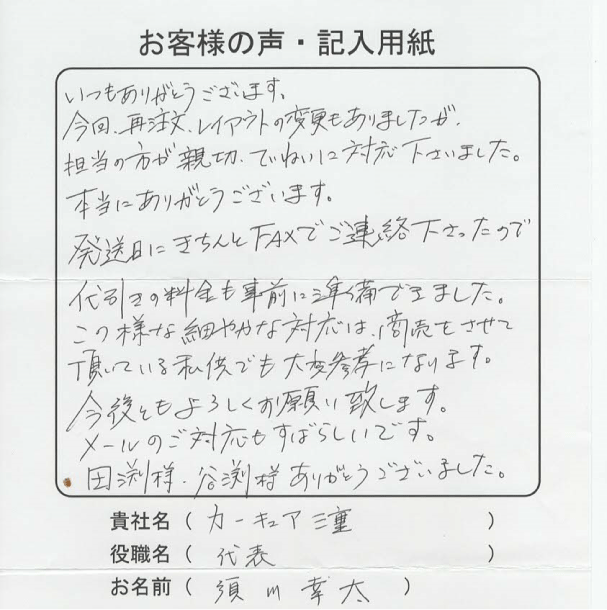 お客様の声・記入用紙
いつもありがとうございます。
今回、再注文、レイアウトの変更もありましたが、
担当の方が親切、ていねいに対応下さいました。
本当にありがとうございます。
発送日にきちんとFAXでご連絡下さったので
代引きの料金も事前に準備できました。
この様な細やかな対応は、商売をさせて
頂いている私供でも大変参考になります。
今後ともよろしくお願い致します。
メールのご対応もすばらしいです。
田渕様・谷渕様ありがとうございました。
貴社名（カーキュア三重）
役職名（代表）
お名前（須川幸太）